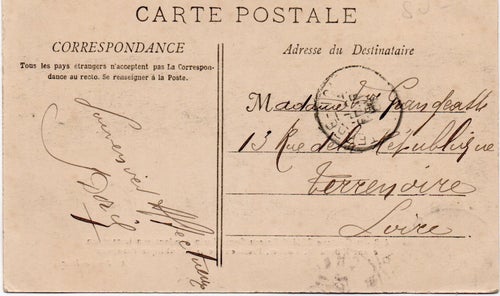 CARTE POSTALE
CORRESPONDANCE
Tous les pays étrangers n'acceptent pas La Correspon-
dance au recto. Se renseigner à la Poste.
Adresse du Destinataire
Souvenir Affectueux
Madame
13 Rue de la République
Terrenoire
Loire.